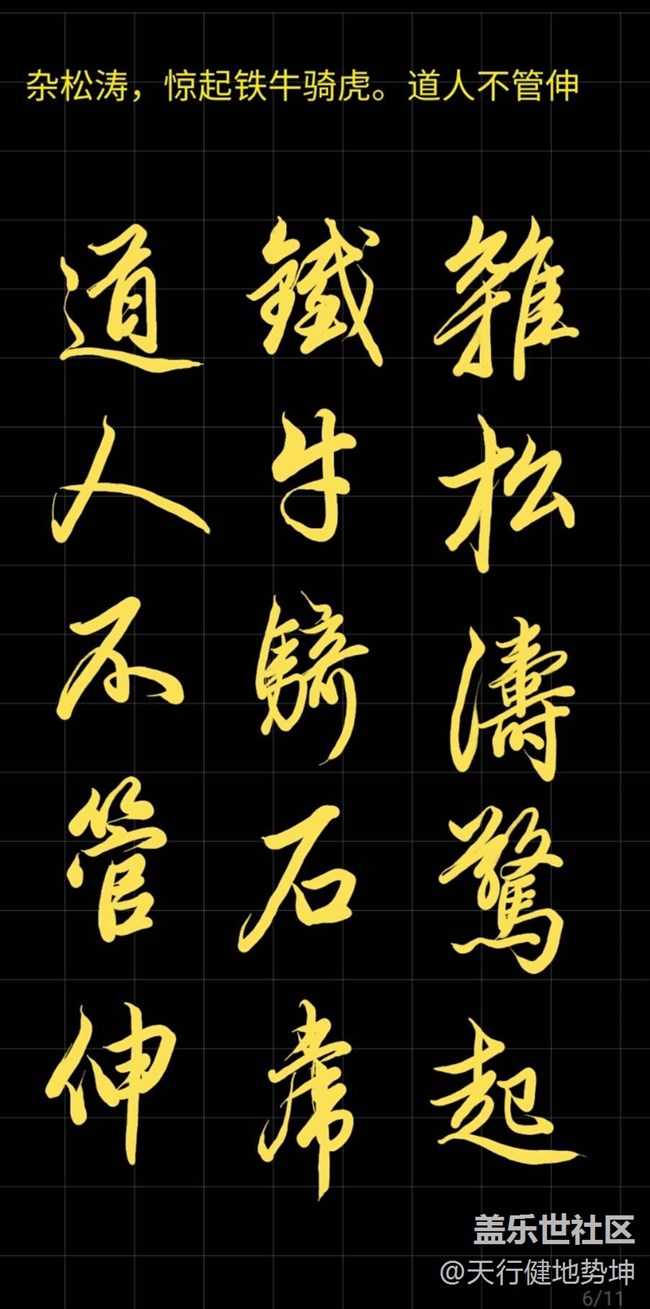 杂松涛，惊起铁牛骑虎。道人不管伸
雜松濤驚起
鐵牛騎石虎
道人不管伸
盖乐世社区
@天行健地势坤
6/11